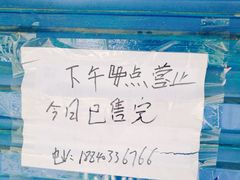 下午4点营业
今日已售完
电话:18843336766